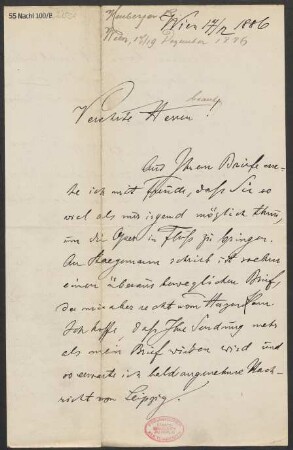 55 Nachl 100/B
Wien 17/12 1886
Wien, 17/19 Dezember 1886
Verehrte Herren!
Aus Ihrem Briefe erse-
he ich mit Freude, dass Sie so
viel als nur irgend möglich thun,
um die Oper in Fluss zu bringen.
An Haegemann schrieb ich soeben
einen überaus beweglichen Brief,
der mir aber recht vom Herzen kam.
Ich hoffe, dass Ihre Sendung mehr
als mein Brief wirken wird und
so erwarte ich bald angenehme Nach-
richt von Leipzig.